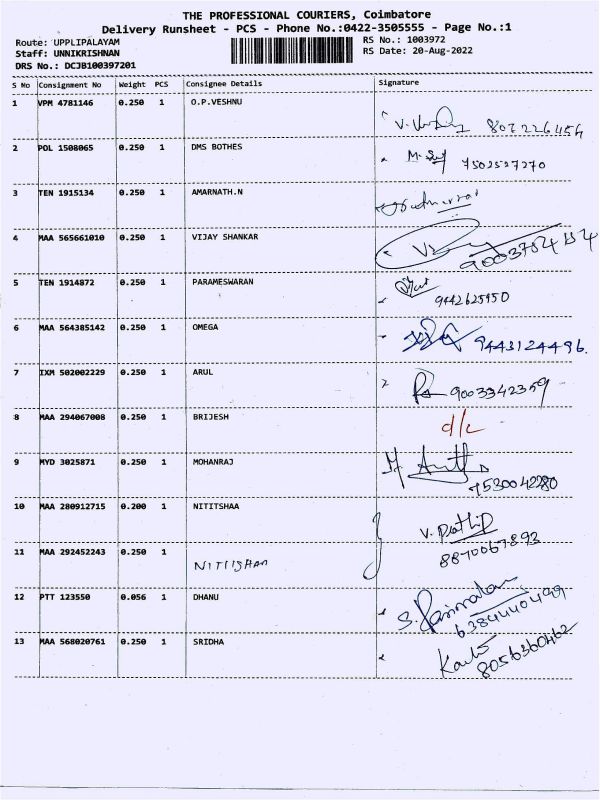 THE PROFESSIONAL COURIERS, Coimbatore
Delivery Runsheet - PCS - Phone No.:0422-3505555 - Page No.:1
Route: UPPLIPALAYAM
Staff: UNNIKRISHNAN
DRS No.: DCJB100397201
RS No.: 1003972
RS Date: 20-Aug-2022
S No Consignment No Weight PCS Consignee Details Signature
1 VPM 4781146 0.250 1 O.P.VESHNU
2 POL 1508065 0.250 1 DMS BOTHES 7502527270
3 TEN 1915134 0.250 1 AMARNATH.N
4 MAA 565661010 0.250 1 VIJAY SHANKAR
5 TEN 1914872 0.250 1 PARAMESWARAN 9442625950
6 MAA 564385142 0.250 1 OMEGA 9443124496.
7 IXM 502002229 0.250 1 ARUL 9003342359
8 MAA 294067008 0.250 1 BRIJESH d/c
9 MYD 3025871 0.250 1 MOHANRAJ 7530042280
10 MAA 280912715 0.200 1 NITITSHAA V. Prathip
8870067893
11 MAA 292452243 0.250 1 NITIISHAA
12 PTT 123550 0.056 1 DHANU 6384440499
13 MAA 568020761 0.250 1 SRIDHA 8056360462